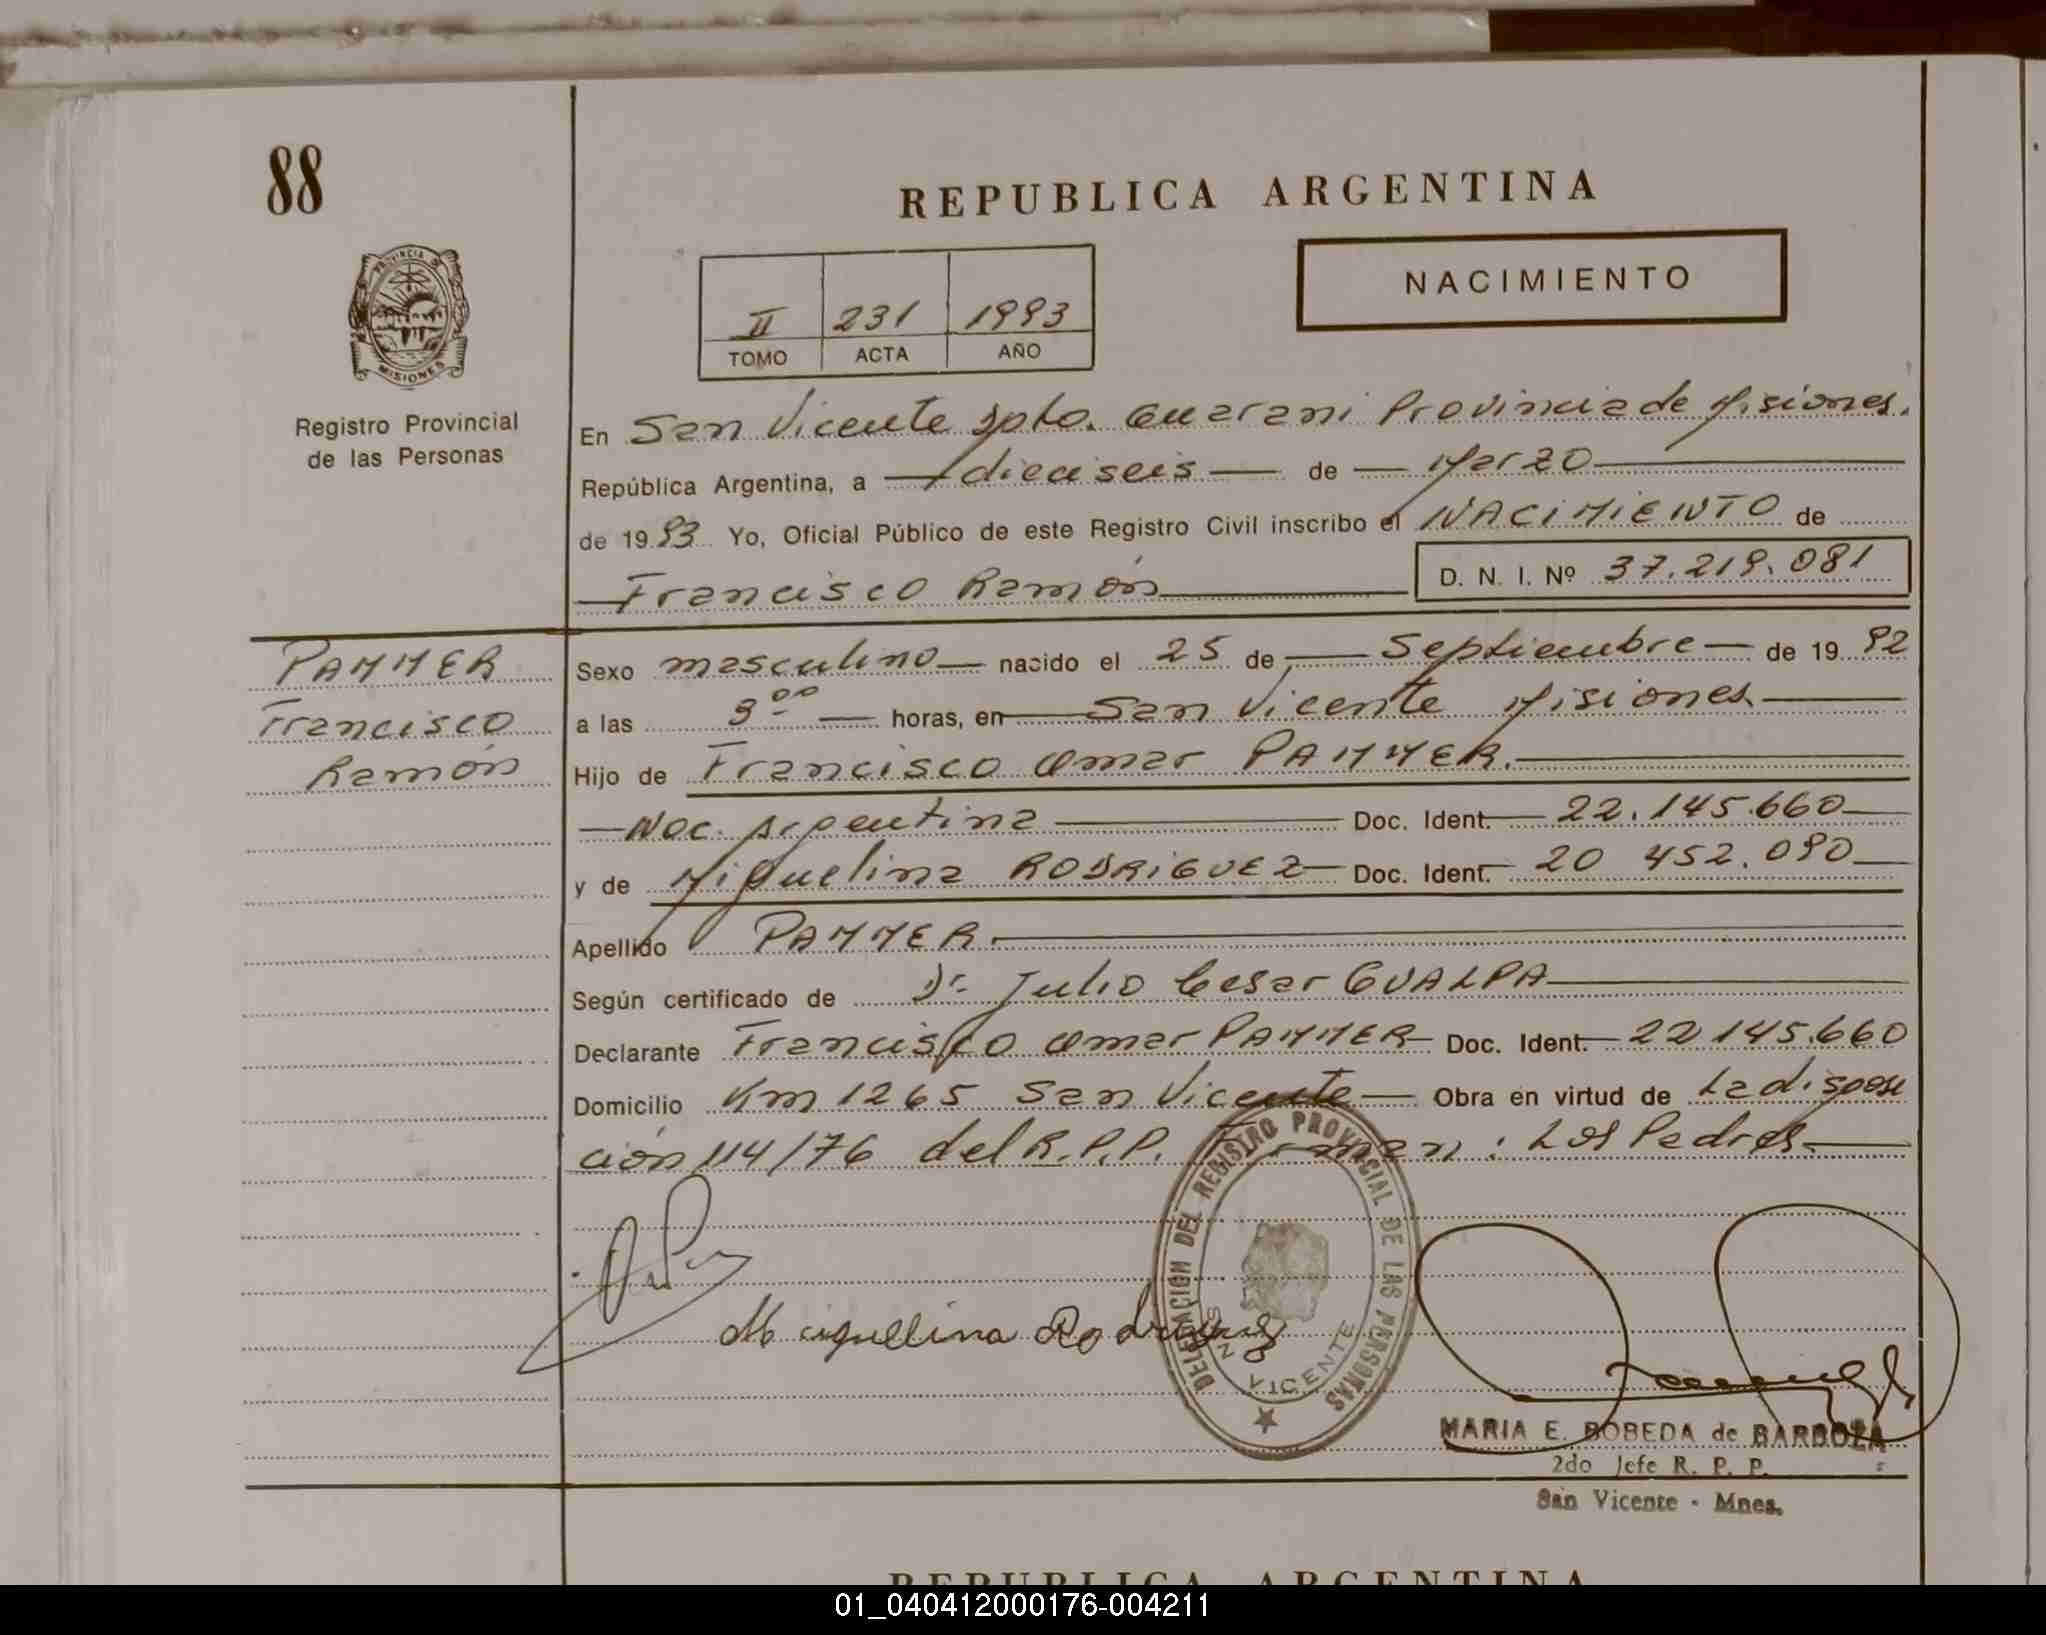 88
REPUBLICA ARGENTINA
NACIMIENTO
II 231 1993
TOMO ACTA AÑO
PROVINCIA DE MISIONES
Registro Provincial
de las Personas
En San Vicente Dpto. Guarani Provincia de Misiones.
República Argentina, a dieciseis de Marzo
de 1993 Yo, Oficial Público de este Registro Civil inscribo el NACIMIENTO de
Francisco Ramón D. N. I. Nº 37.219.081
PAMMER
Francisco
Ramón
Sexo masculino nacido el 25 de Septiembre de 1992
a las 3⁰⁰ horas, en San Vicente Misiones
Hijo de Francisco Omar PAMMER.
Nac. Argentina Doc. Ident. 22.145.660
y de Miguelina RODRIGUEZ Doc. Ident. 20 452.090
Apellido PAMMER.
Según certificado de Dr. Julio Cesar GUALPA
Declarante Francisco Omar PAMMER Doc. Ident. 22 145.660
Domicilio Km 1265 San Vicente Obra en virtud de La disposi
ción 114/76 del R.P.P. Firman: Los Padres
DELEGACION DEL REGISTRO PROVINCIAL DE LAS PERSONAS
SAN VICENTE
Miguelina Rodriguez
MARIA E. BOBEDA de BARBOZA
2do Jefe R. P. P.
San Vicente - Mnes.
REPUBLICA ARGENTINA
01_040412000176-004211